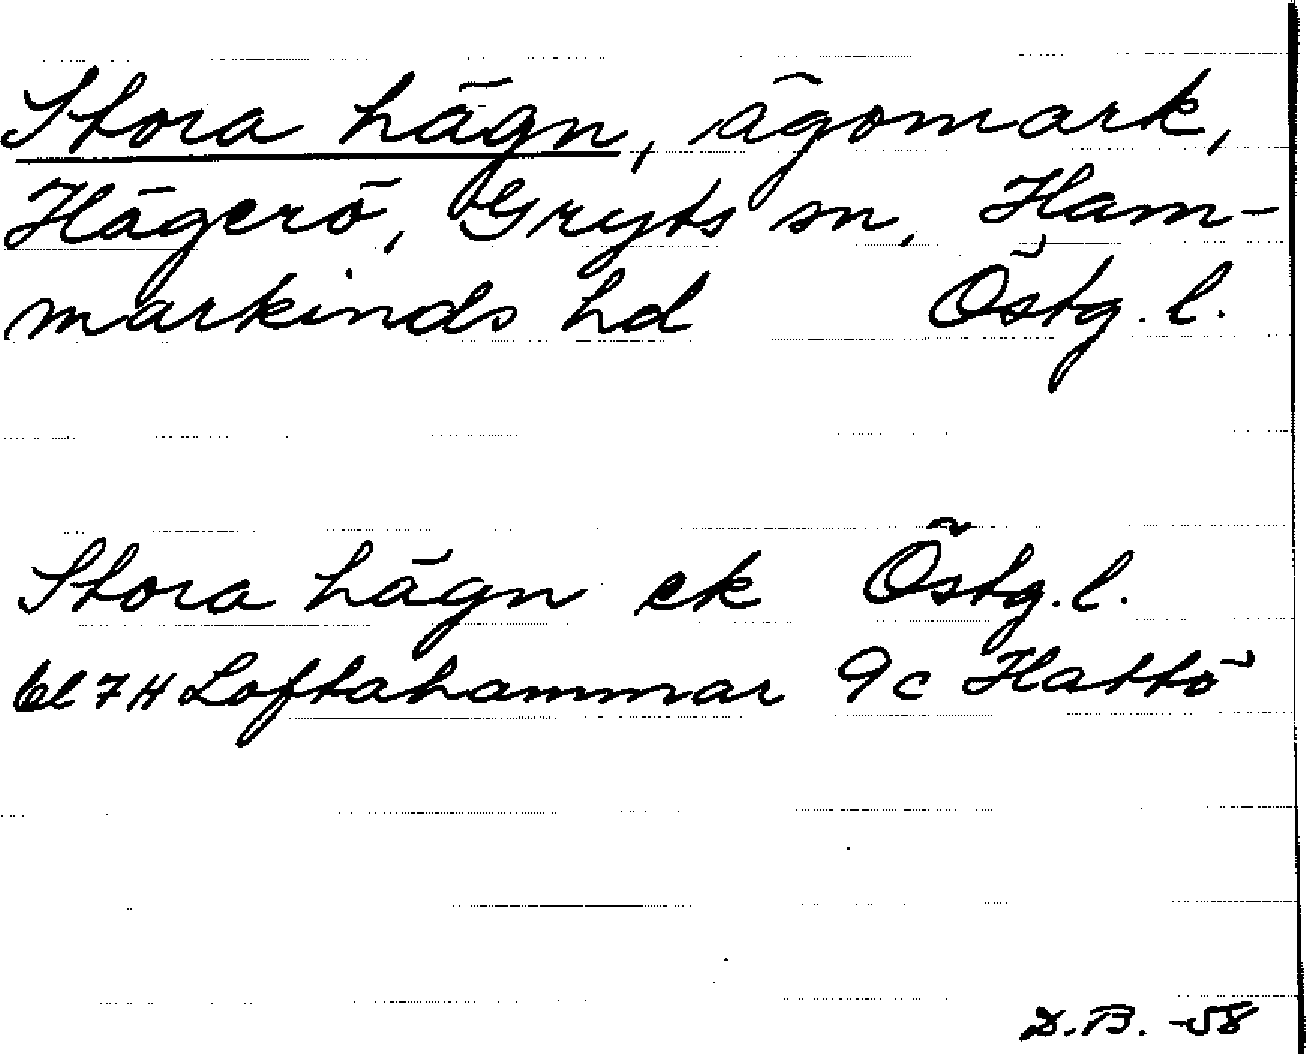 Stora hägn, ägomark,
Hägerö, Gryts sn, Ham-
markinds hd Östg. l.
Stora hägn ek Östg. l.
bl 7 H Loftahammar 9c Hattö
D.B. -58